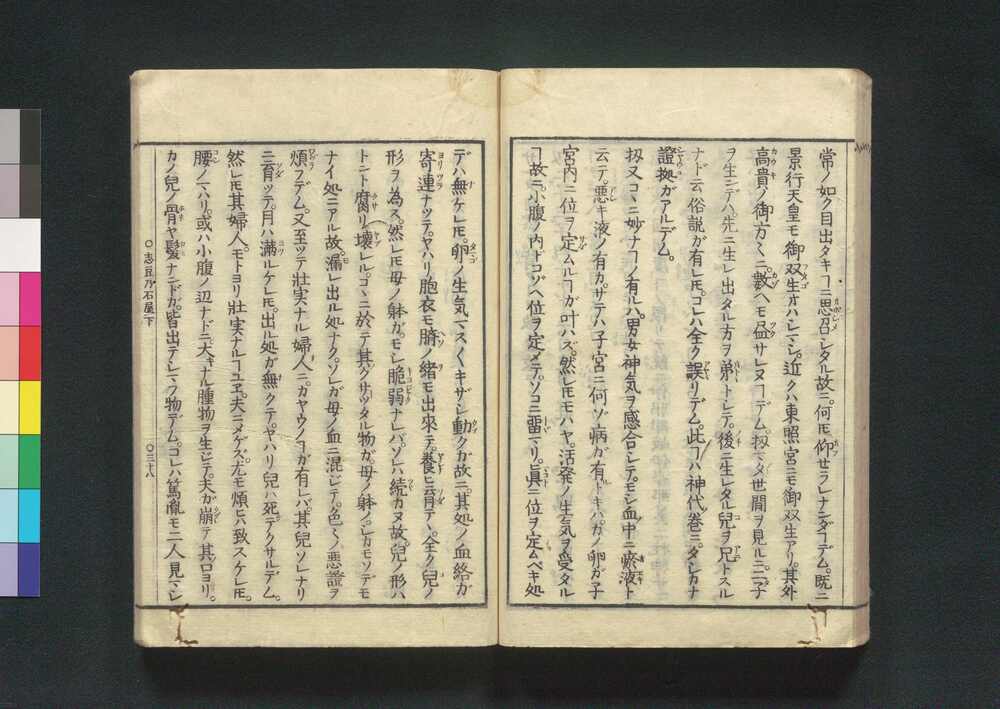 常ノ如ク目出タキヿニ思召シタル故ニ。何ヒモ仰セラレナンダヿデム。既ニ
景行天皇モ御双生オハシマシ。近クハ東照宮ニモ御双生アリ。其外
高貴ノ御方々ニ。數ヘモ尽サレヌヿデム。扨マタ世間ヲ見ルニ。二子
ヲ生ンデハ。先ニ生レ出タル方ヲ弟トシテ。後ニ生レタル兒ヲ兄トスル
ナド云俗説ガ有レㇳモ。コレハ全ク誤リデム。此ヿハ神代巻ニ。タシカナ
證拠ガアルデム。
扨又コヽニ妙ナヿノ有ルハ。男女神気ヲ感合シテモ。モシ血中ニ瘀液ト
云テ悪キ液ノ有カ。サテハ子宮ニ何ソ病ガ有トキハ。カノ卵ガ子
宮内ニ位ヲ定ムルヿガ叶ハズ。然レㇳモモハヤ。活発ノ生気ヲ受タル
ヿ故ニ。小腹ノ内トコゾヘ位ヲ定メテソコニ畱マリ。眞ニ位ヲ定ムベキ処
デハ無ケレㇳモ。卵ノ生気マスマスキザシ動クガ故ニ。其処ノ血絡ガ
寄連ナツテ。ヤハリ胞衣モ臍ノ緒モ出來テ。養ヒ育テ。全ク兒ノ
形ヲ為ス。然レㇳモ母ノ躰ガ。モシ脆弱ナレバ。ソレハ続カヌ故。兒ノ形ハ
トント腐リ壊レル。コヽニ於テ其クサツタル物ガ母ノ躰ノ。シカモソデモ
ナイ処ニアル故。漏レ出ル処ナク。ソレガ母ノ血ニ混ジテ。色々ノ悪證ヲ
煩フデム。又至ツテ壮実ナル婦人ニ。カヤウノヿガ有レバ。其兒ソレナリ
ニ育ツテ。月ハ満ルケレㇳモ。出ル処ガ無クテ。ヤハリ兒ハ死テクサルデム。
然レㇳモ其婦人。モトヨリ壮実ナルヿユヱ。夫ニメゲズ。尤モ煩ヒハ致スケレㇳモ。
腰ノマハリ。或ハ小腹ノ辺ナドニ大キナル腫物ヲ生ジテ。夫ガ崩テ其口ヨリ。
カノ兒ノ骨ヤ髪ナンドガ。皆出テシマフ物デム。コレハ篤胤モ二人見マシ
○志豆乃石屋下
○三十八